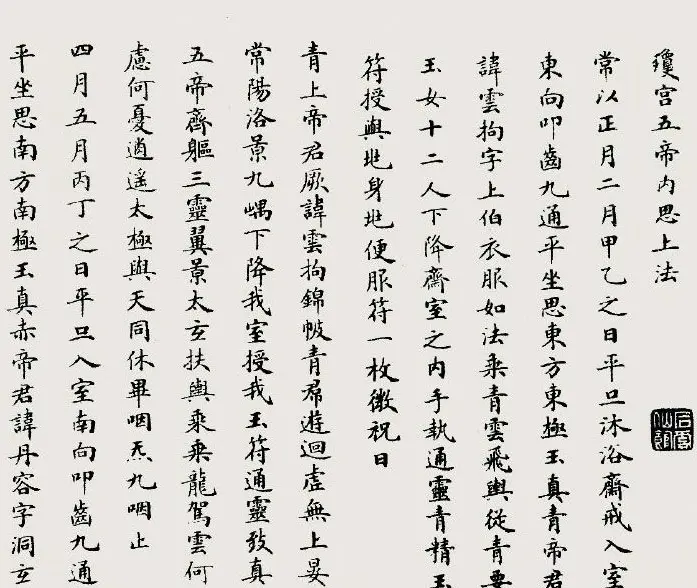 瓊宮五帝內思上法
常以正月二月甲乙之日平旦沐浴齋戒入室
東向叩齒九通平坐思東方東極玉真青帝君
諱雲拘字上伯衣服如法乘青雲飛輿從青要
玉女十二人下降齋室之內手執通靈青精玉
符授與兆身兆便服符一枚微祝曰
青上帝君厥諱雲拘錦帔青帬遊迴虛無上晏
常陽洛景九嵎下降我室授我玉符通靈致真
五帝齊軀三靈翼景太玄扶輿乘乘龍駕雲何
慮何憂逍遙太極與天同休畢咽炁九咽止
四月五月丙丁之日平旦入室南向叩齒九通
平坐思南方南極玉真赤帝君諱丹容字洞玄